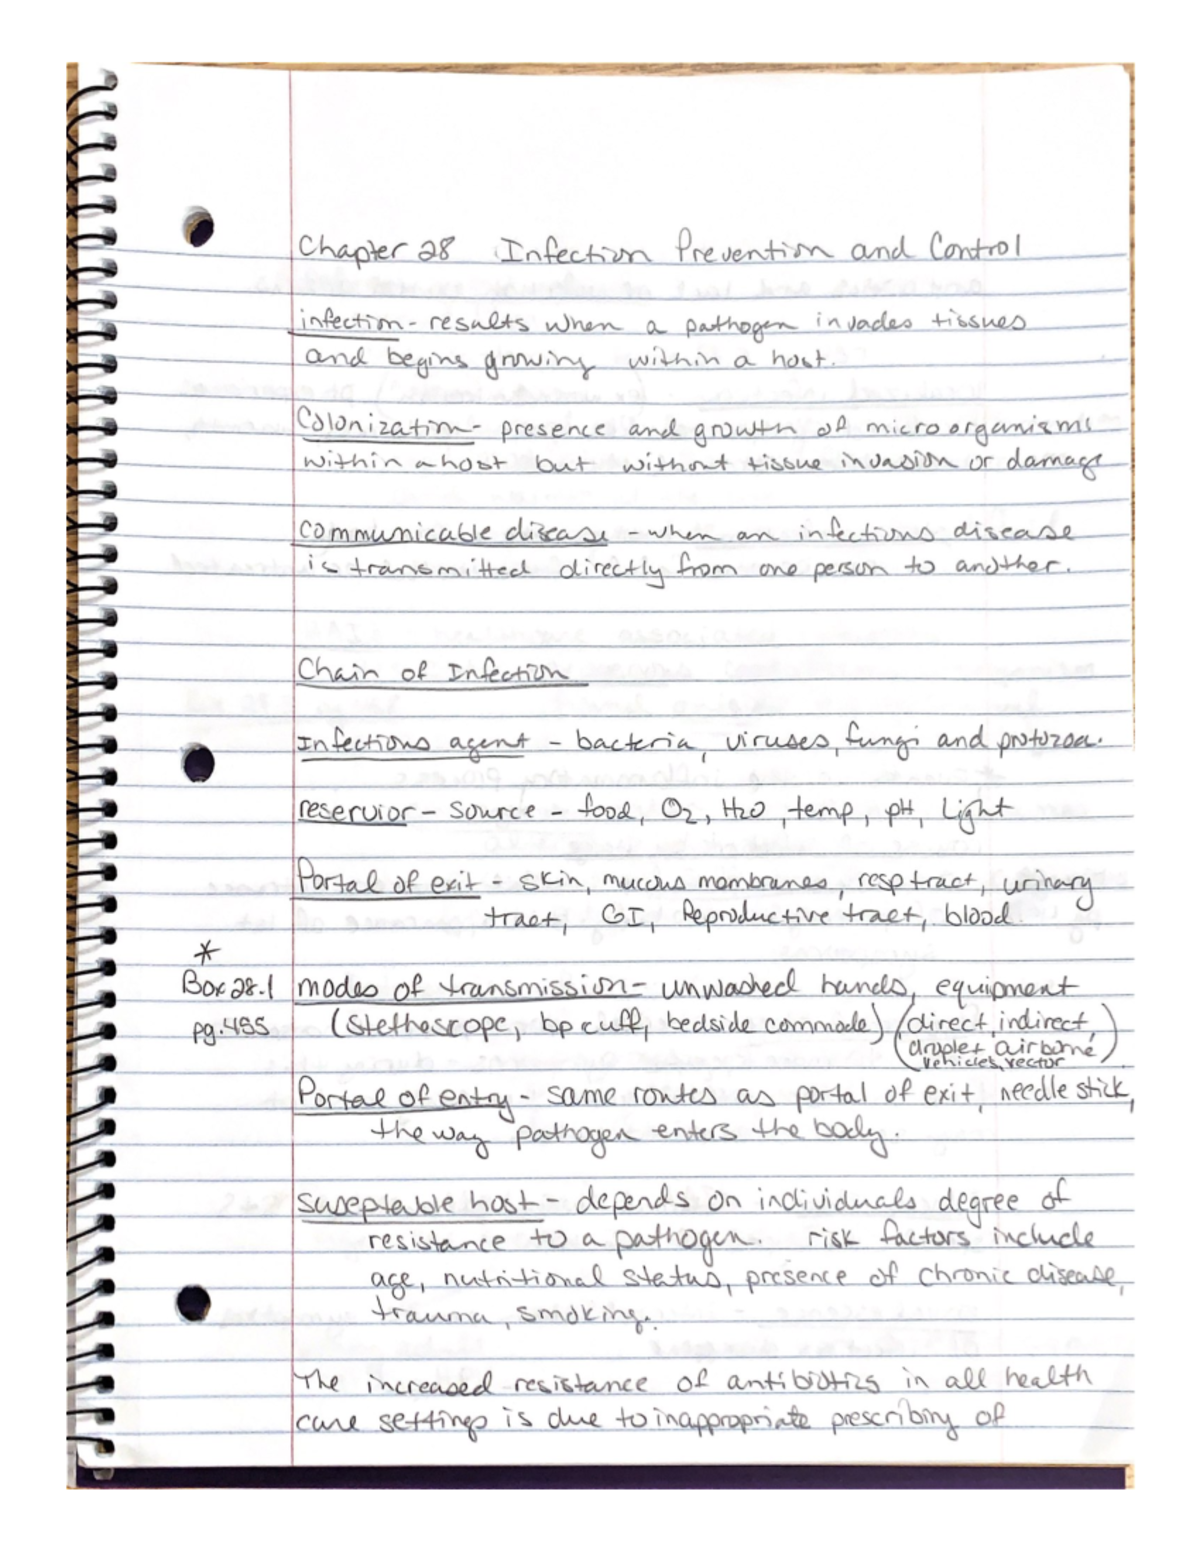 Chapter 28 Infection Prevention and Control
infection - results when a pathogen invades tissues
and begins growing within a host.
Colonization - presence and growth of microorganisms
within a host but without tissue invasion or damage
communicable disease - when an infectious disease
is transmitted directly from one person to another.
Chain of Infection
Infectious agent - bacteria, viruses, fungi and protozoa.
reservior - source - food, O2, H2O, temp, pH, Light
Portal of exit - skin, mucous membranes, resp tract, urinary
tract, GI, Reproductive tract, blood
*
Box 28.1 modes of transmission - unwashed hands, equipment
pg.455 (stethescope, bp cuff, bedside commode) (direct, indirect,
droplet airborne)
vehicles, vector
Portal of entry - same routes as portal of exit, needle stick,
the way pathogen enters the body.
suseptable host - depends on individuals degree of
resistance to a pathogen. risk factors include
age, nutritional status, presence of chronic disease,
trauma, smoking.
The increased resistance of antibiotics in all health
care settings is due to inappropriate prescribing of